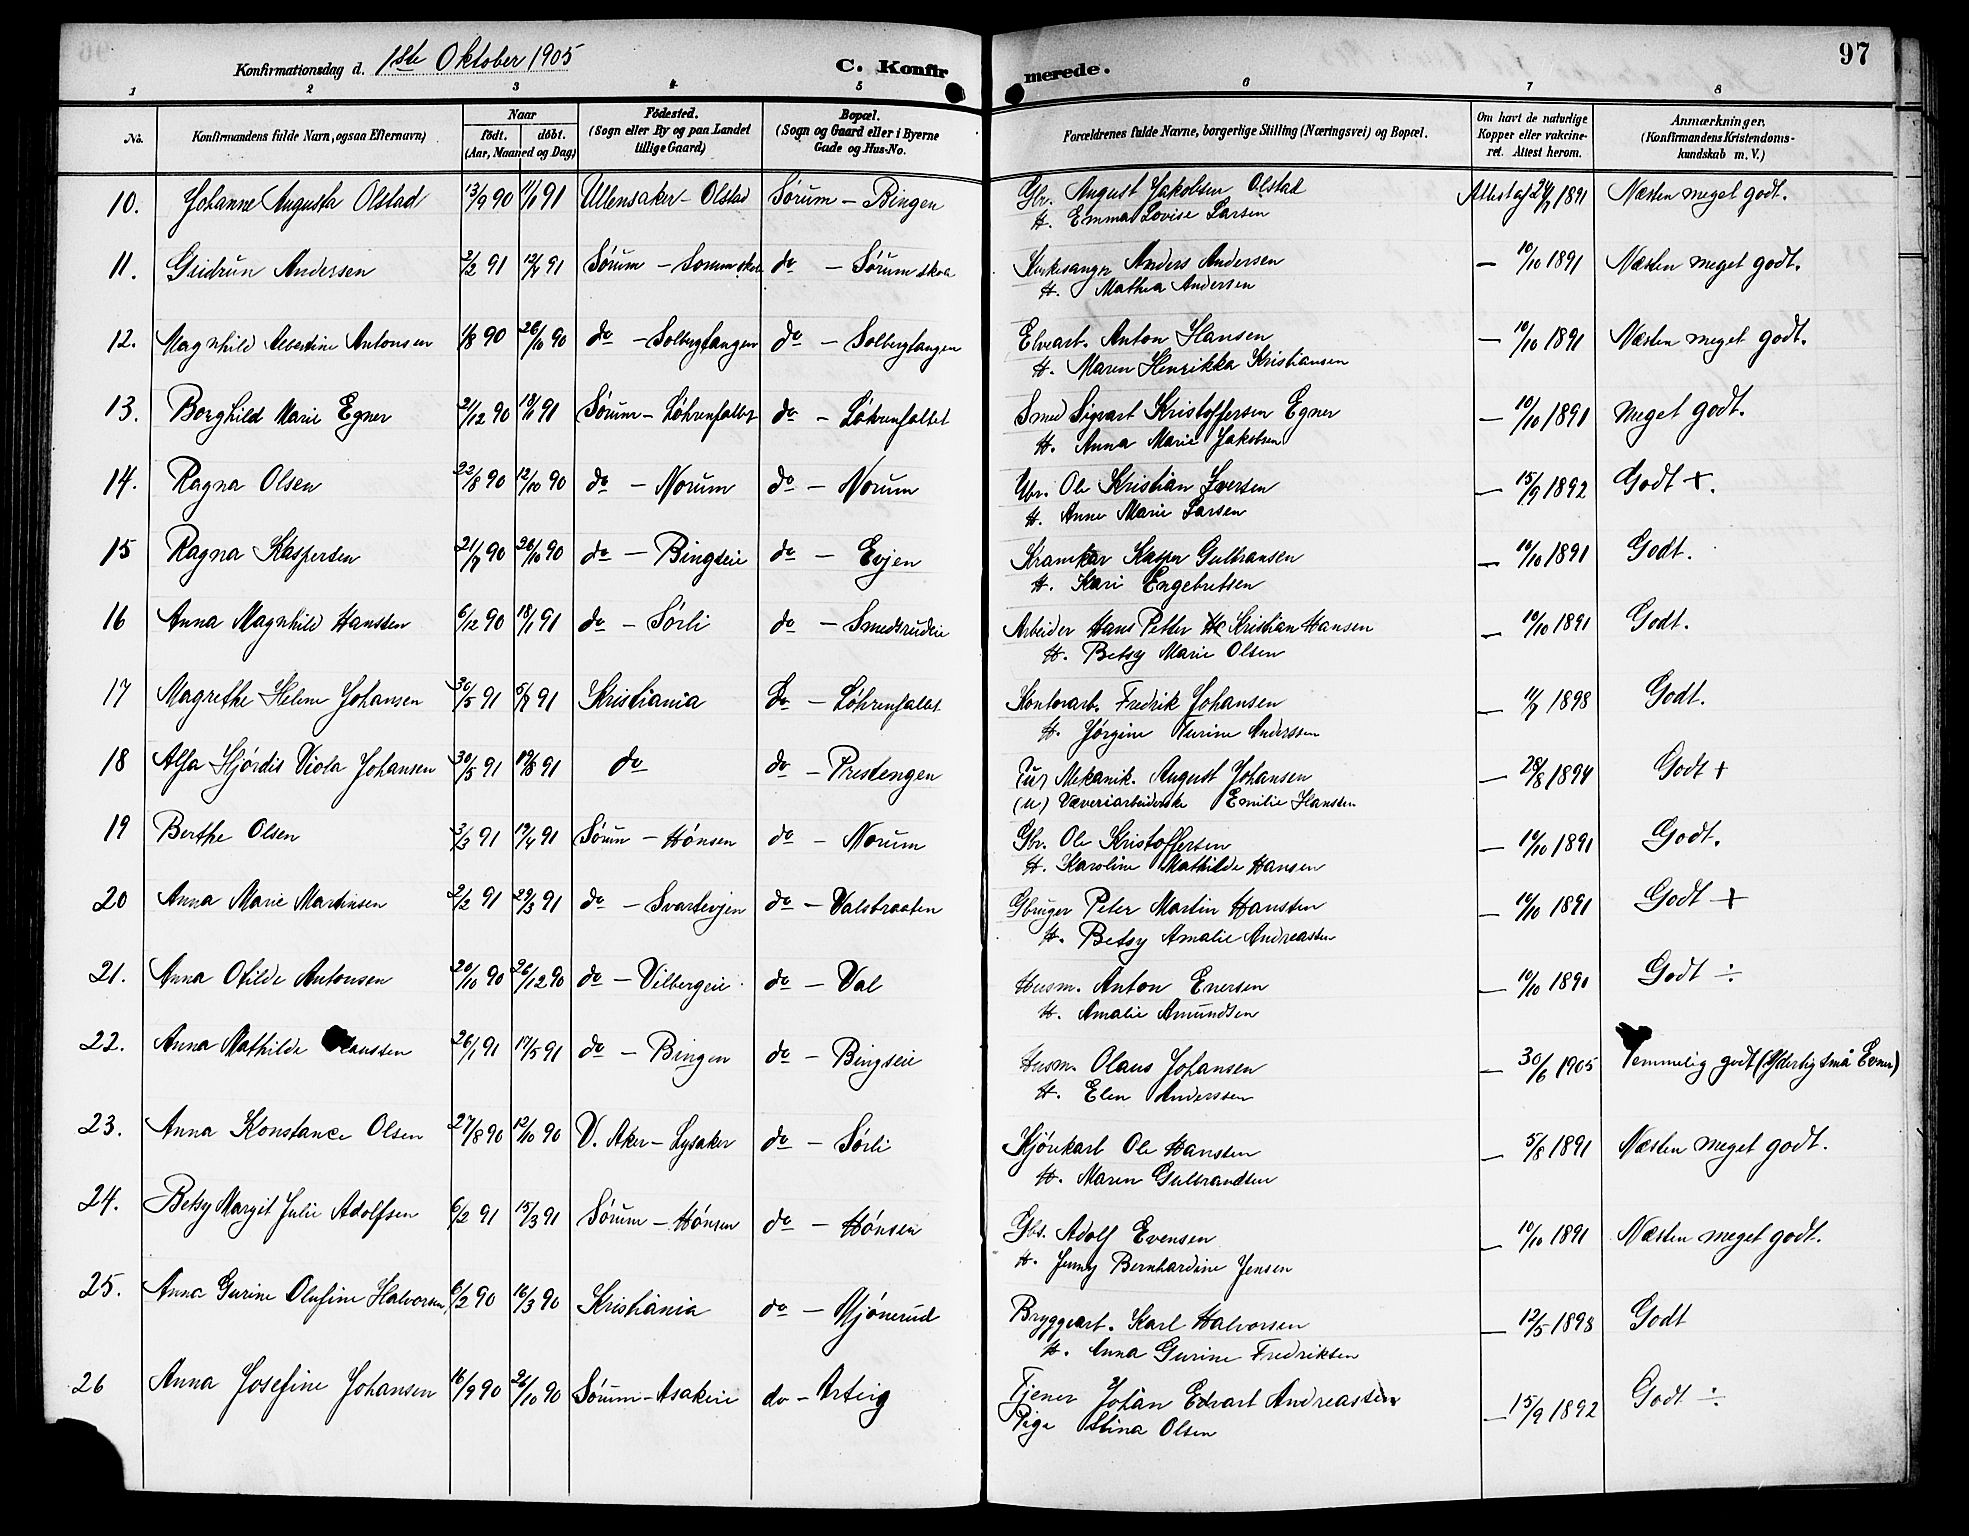 Konfirmationsdag d. 1ste Oktober 1905
C. Konfirmerede.
97
1 2 3 4 5 6 7 8
No.
Konfirmandens fulde Navn, ogsaa Efternavn)
Naar
födt. döbt.
(Aar, Maaned og Dag)
Födested.
(Sogn eller By og paa Landet
tillige Gaard)
Bopæl.
(Sogn og Gaard eller i Byerne
Gade og Hus-No.
Forældrenes fulde Navne, borgerlige Stilling (Næringsvei) og Bopæl.
Om havt de naturlige
Kopper eller vakcine-
ret. Attest herom.
Anmærkninger.
(Konfirmandens Kristendoms-
kundskab m. V.)
10. Johanne Augusta Olstad 13/9 90 11/1 91 Ullensaker - Olstad Sørum - Bingen Gbr. August Jakobsen Olstad Attest af 24/7 1891 Næsten meget godt.
H. Emma Lovise Larsen
11. Gudrun Andersen 2/2 91 12/4 91 Sørum - Sørum skole do - Sørum skole Kirkesanger Anders Andersen - 10/10 1891 Næsten meget godt.
H. Mathea Andersen
12. Magnhild Albertine Antonsen 1/8 90 26/10 90 do - Solbergtangen do - Solbergtangen Elvearb. Anton Hansen - 10/10 1891 Næsten meget godt.
H. Maren Henrikka Kristiansen
13. Borghild Marie Egner 21/12 90 18/1 91 Sørum - Løhrenfallet do - Løhrenfallet Smed Sigvart Kristoffersen Egner - 10/10 1891 meget godt.
H. Anna Marie Jakobsen
14. Ragna Olsen 22/8 90 12/10 90 do - Norum do - Norum Gbr. Ole Kristian Iversen - 15/9 1892 Godt +.
H. Anne Marie Larsen
15 Ragna Kaspersen 21/7 90 26/10 90 do - Bingseie do - Evjen Kramkar Kasper Gulbransen - 10/10 1891 Godt.
H. Kari Engebretsen
16 Anna Magnhild Hanssen 6/12 90 18/1 91 do - Sørli do - Smedsrudeie Arbeider Hans Petter Kristian Hansen - 10/10 1891 Godt.
H. Betsy Marie Olsen
17 Magrethe Helene Johansen 30/5 91 5/7 91 Kristiania do - Løhrenfallet Kontorarb. Fredrik Johansen - 11/7 1898 Godt.
H. Jørgine Turine Anderssen
18 Alfa Hjørdis Viola Johansen 30/5 91 19/8 91 do do - Prestengen (u) Mekanik. August Johansen - 28/8 1894 Godt +
(u) Væveriarbeiderske Emilie Hanssen
19 Berthe Olsen 3/3 91 19/4 91 Sørum - Hønsen do - Norum Gbr. Ole Kristoffersen - 10/10 1891 Godt.
H. Karoline Mathilde Hansen
20 Anna Marie Martinsen 2/2 91 29/3 91 do - Svartevjen do - Valsbraaten Gbruger Peter Martin Hanssen - 10/10 1891 Godt +
H. Betsy Amalie Andreassen
21. Anna Otilde Antonsen 20/10 90 26/12 90 do - Vilbergeie do - Val Husm. Anton Enersen - 10/10 1891 Godt ÷
H. Amalie Amundsen
22. Anna Mathilde Olaussen 26/1 91 17/5 91 do - Bingen do - Bingseie Husm. Olaus Johansen - 30/6 1905 Temmelig godt (Yderlig små Evner)
H. Elen Anderssen
23. Anna Konstance Olsen 27/8 90 12/10 90 V. Aker - Lysaker do - Sørli Kjørekarl Ole Hanssen - 5/8 1891 Næsten meget godt.
H. Maren Gulbrandsen
24. Betsy Margit Julie Adolfsen 6/2 91 15/3 91 Sørum - Hønsen do - Hønsen Gbr. Adolf Evensen - 10/10 1891 Næsten meget godt.
H. Jenny Bernhardine Jensen
25. Anna Gurine Olufine Halvorsen 6/2 90 16/3 90 Kristiania do - Mjønerud Bryggearb. Karl Halvorsen - 12/5 1898 Godt
H. Anna Gurine Fredriksen
26 Anna Josefine Johansen 16/9 90 26/10 90 Sørum - Asakeie do - Arteig Tjener Johan Edvart Andreassen - 15/9 1892 Godt ÷
Pige Stina Olsen